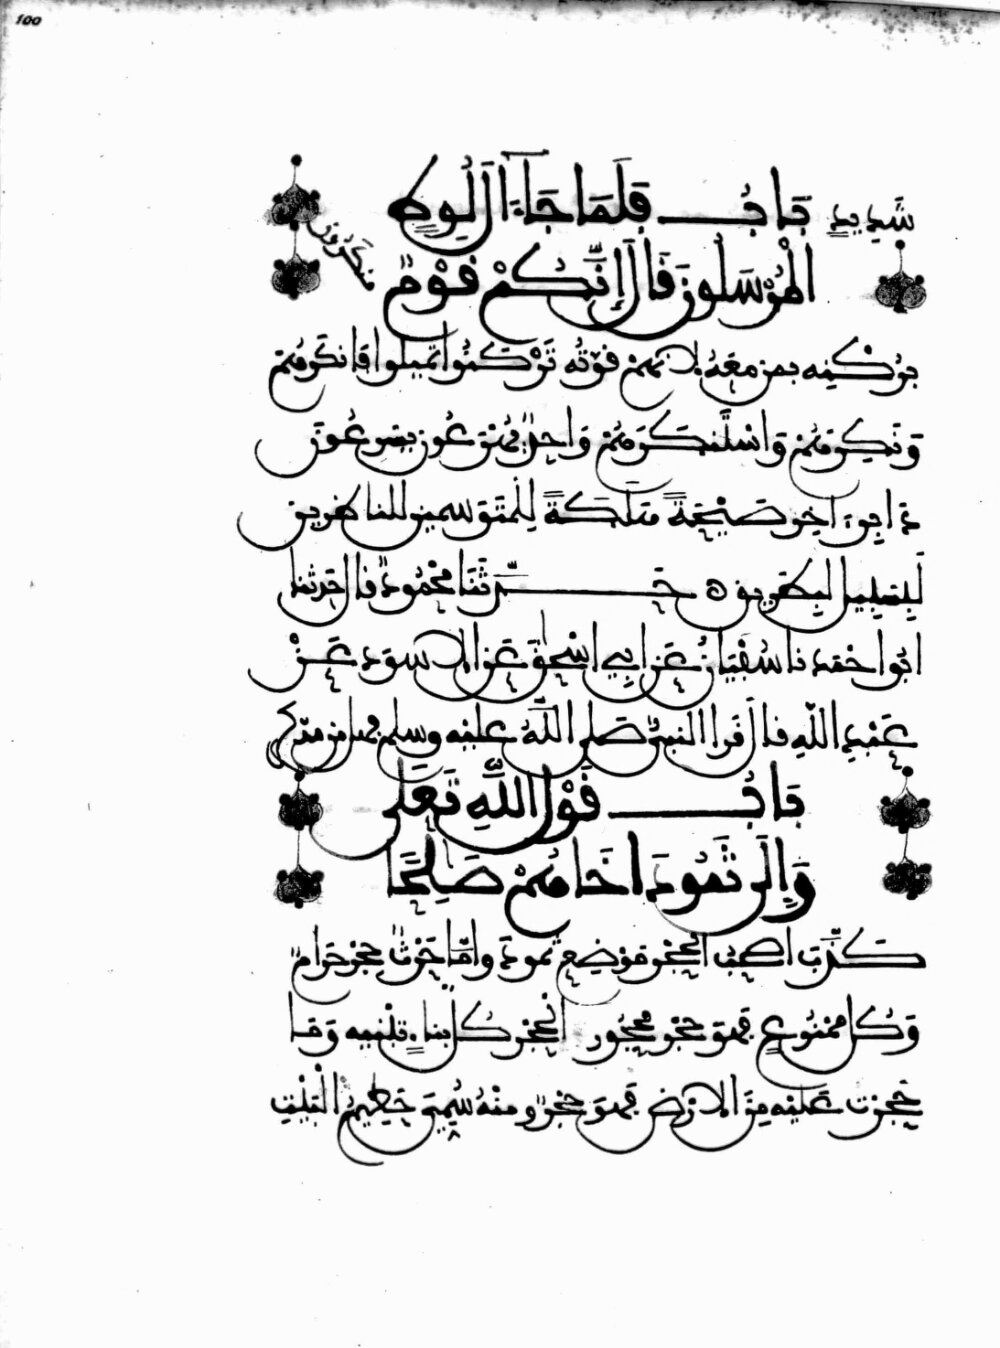 100
شَدِيدٍ بَابُ فَلَمَّا جَاءَ الَ لُوطٍ
الْمُرْسَلُونَ قَالَ إِنَّكُمْ قَوْمٌ
مُنكَرُونَ
بِرُكْنِهِ بمن مَعَهُ لانهم قوّتُه تَرْكَنُوا تميلوا فَانكَرَهُمْ
وَنَكِرَهُمْ وَاسْتَنكَرَهُمْ وَاحِدٌ يُهْرَعُونَ يسرعُونَ
دَابِرَ آخِرَ صَيْحَةً هَلَكَةً لِلْمُتَوَسِمِينَ للناظرين
لَبِسَبِيلٍ لبطريق حَدَّثَنَا مَحْمُودٌ قال حَدثنا
ابُو احْمَد نا سُفْيَانُ عَن ابِي اسْحَقَ عَنِ الاسود عَنْ
عَبْدِ اللهِ قال قَرَا النبيُّ صَلى اللهُ عليْه وسلم فهل من مدّكر
بَابُ قَوْلِ اللَّهِ تَعَلَى
وَإِلَى ثَمُودَ اخَاهُمْ صَلِحًا
كَذَّبَ اصحب الحجر موْضِع ثمودَ وامّا حَرْثٌ حجر حَرَامٌ
وَكُل ممْنُوعٍ فهْوَ حجر محْجُور الحجْر كُل بناءٍ تبْنيه وَمَا
حَجرْت عَليْه مِنَ الارْض فهوَ حجْرٌ ومنْهُ سُمِّيَ حَطِيمُ الْبَيْت